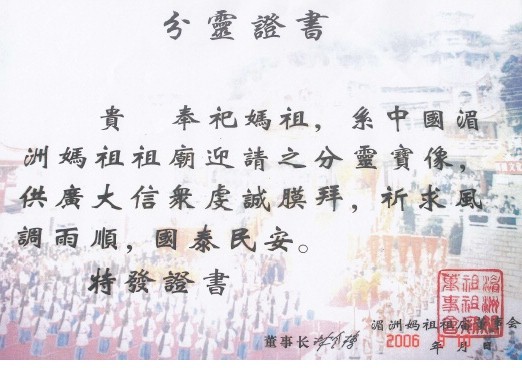 分靈證書
貴　奉祀媽祖，系中國湄
洲媽祖祖廟迎請之分靈寶像，
供廣大信衆虔誠膜拜，祈求風
調雨順，國泰民安。
特發證書
湄洲媽祖祖庙董事会
董事长 2006 年 月 日